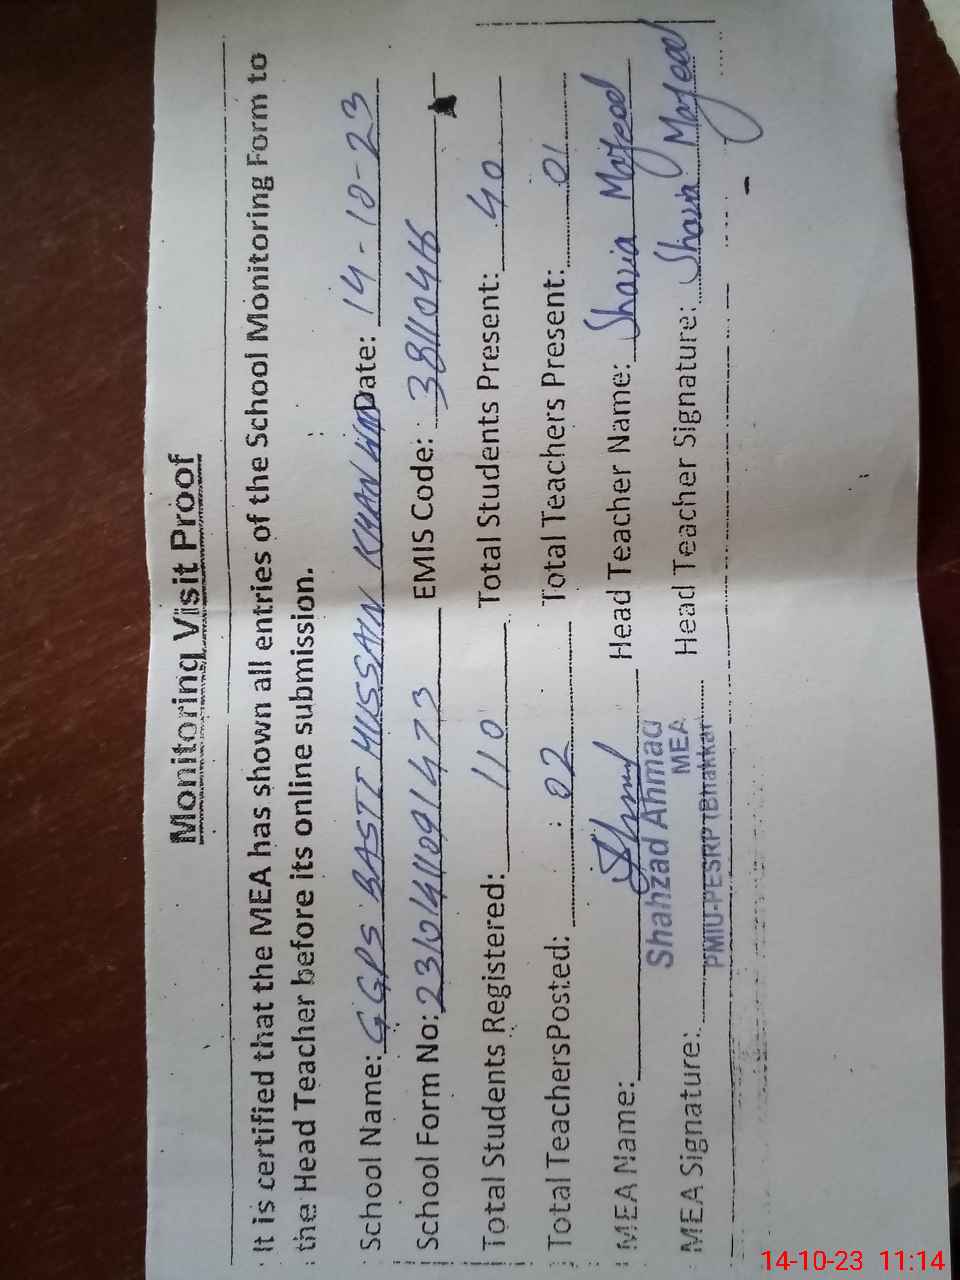 Monitoring Visit Proof
It is certified that the MEA has shown all entries of the School Monitoring Form to
the Head Teacher before its online submission.
School Name: GGPS BASTI HUSSAIN KHAN Date: 14-10-23
School Form No: EMIS Code:
Total Students Registered: 110 Total Students Present: 40
Total TeachersPosted: 02 Total Teachers Present: 01
MEA Name: Head Teacher Name: Shazia Majeed
Shahzad Ahmad
MEA
MEA Signature: Head Teacher Signature: Shazia Majeed
PMIU-PESRP (Bhakkar)
14-10-23 11:14